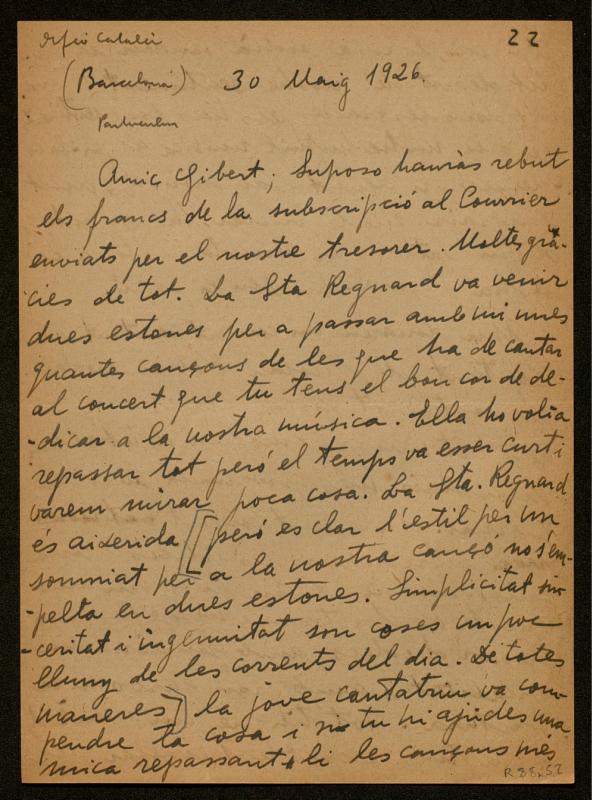 Orfeó Català
22
(Barcelona) 30 Maig 1926.
Amic Gibert; Suposo hauràs rebut
els francs de la subscripció al Courrier
enviats per el nostre tresorer. Moltes grà-
cies de tot. La Sta Regnard va venir
dues estones per a passar amb mi unes
quantes cançons de les que ha de cantar
al concert que tu tens el bon cor de de-
-dicar a la nostra música. Ella ho volia
repassar tot però el temps va esser curt i
varem mirar poca cosa. La Sta. Regnard
és aixerida [però es clar l'estil per un
somniat per a la nostra cançó no s'em-
-pelta en dues estones. Simplicitat sin-
-ceritat i ingenuitat son coses un poc
lluny de les corrents del dia. De totes
maneres] la jove cantatriu va com-
pendre la cosa i si tu hi ajudes una
mica repassant-li les cançons més
R 88,52